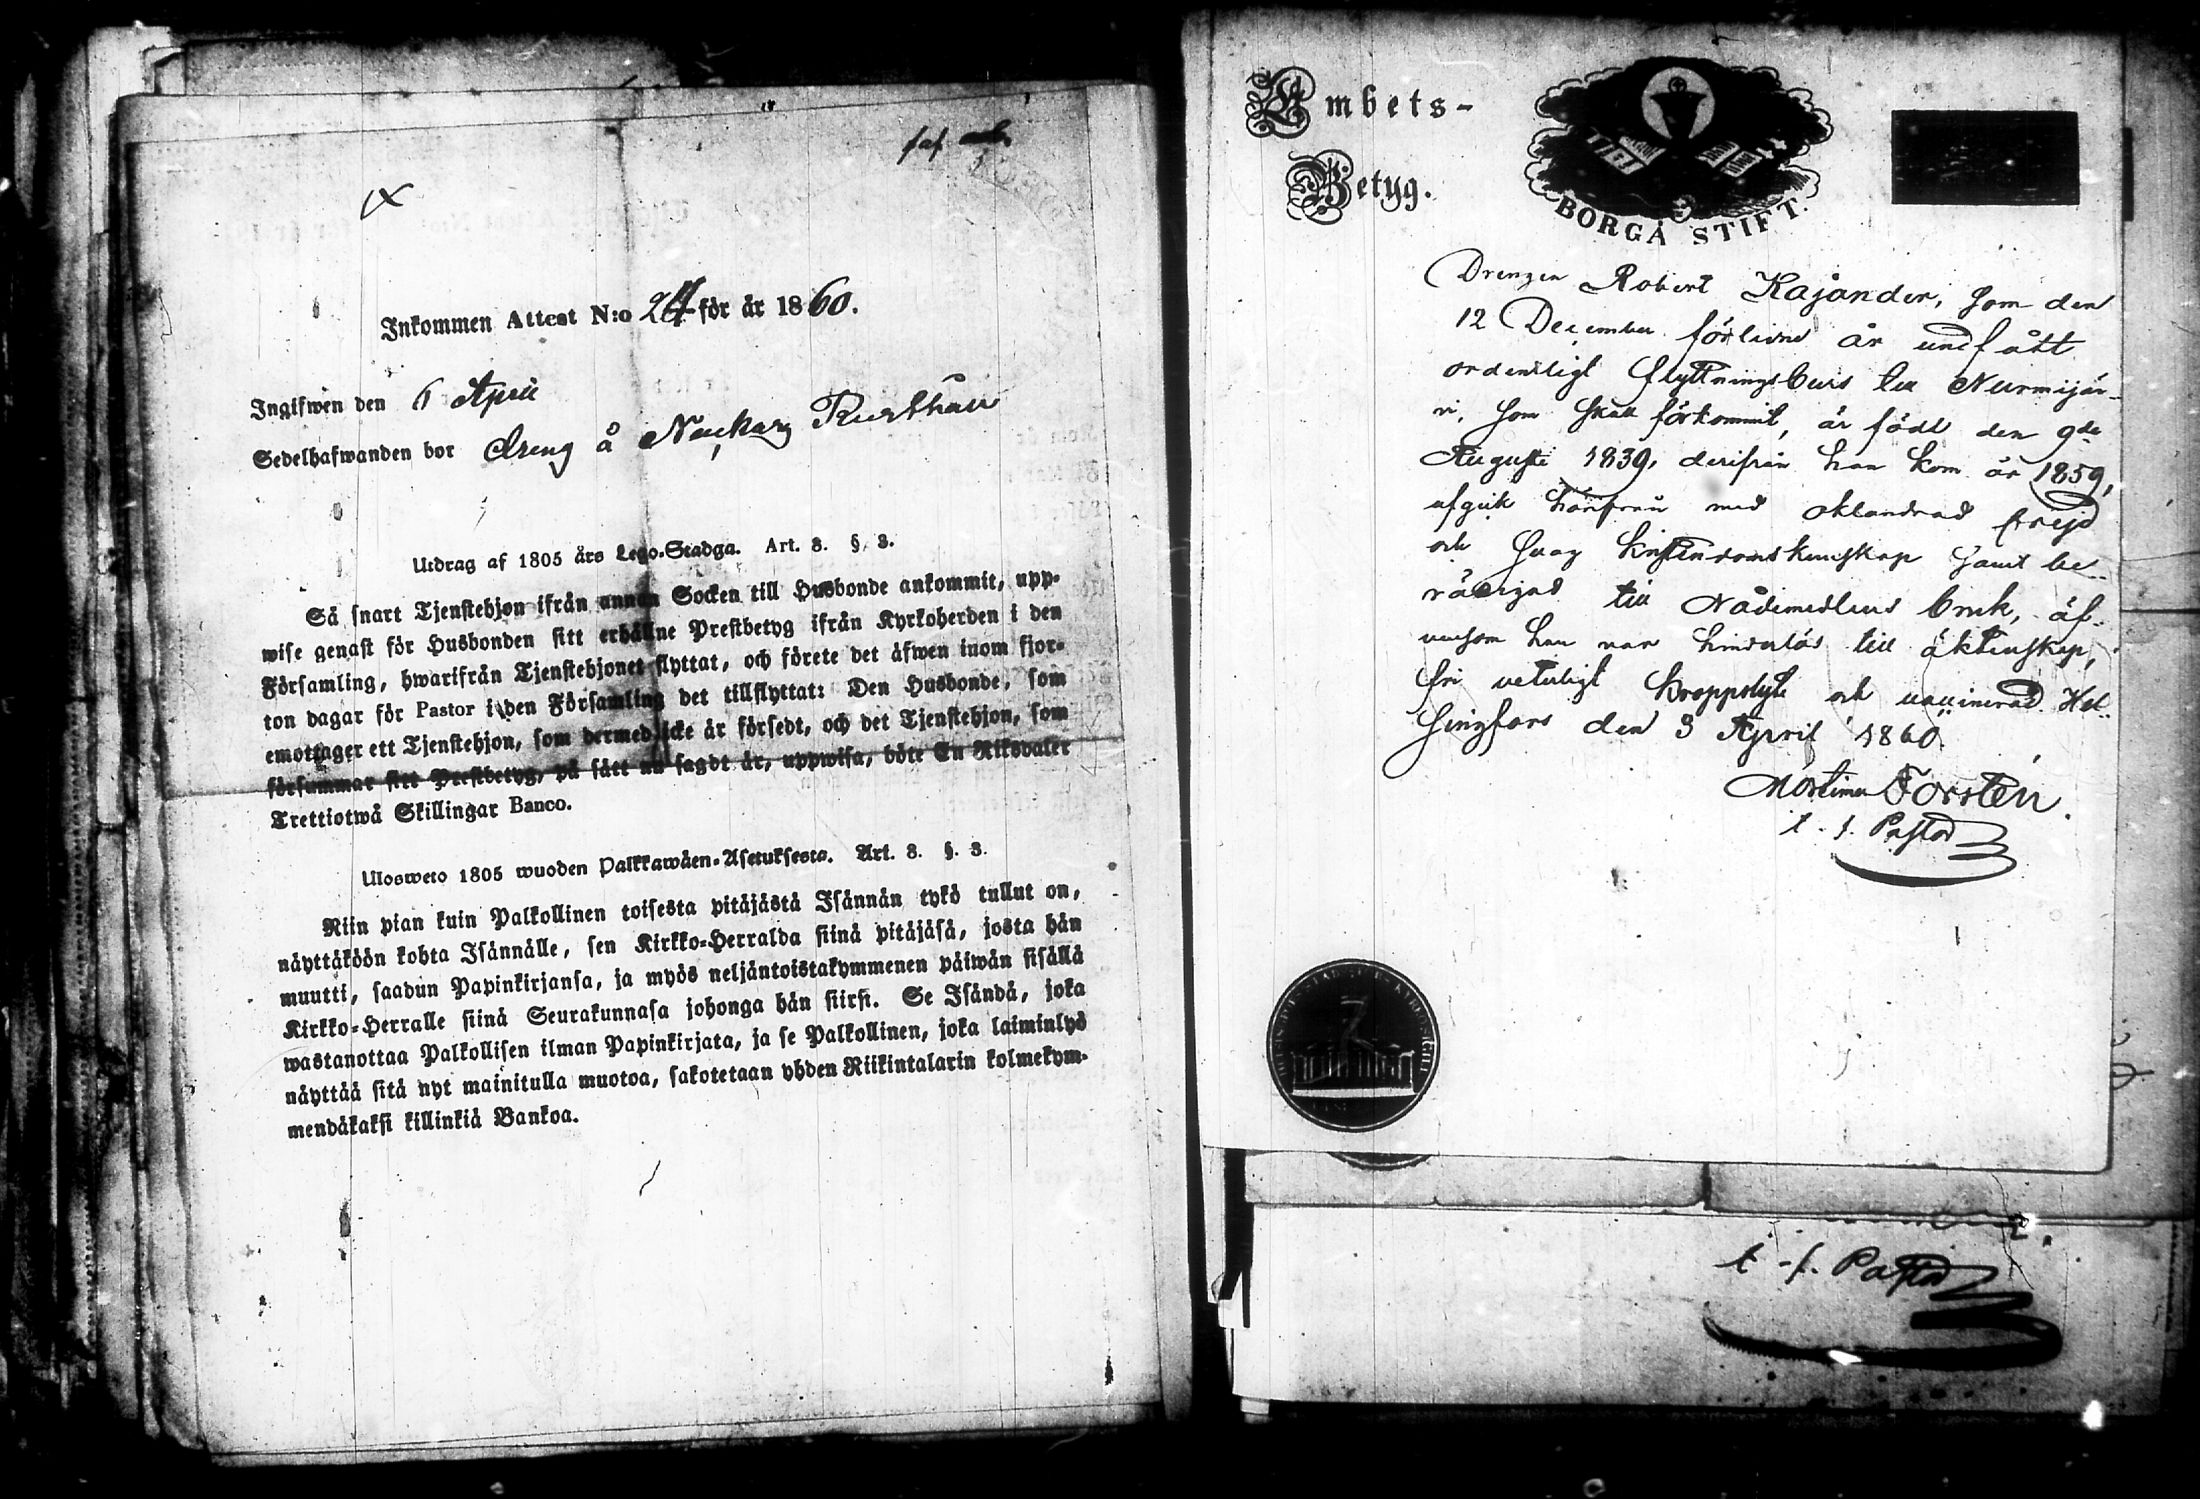 Inkommen Attest N:o 24 för år 1860.
Ingifwen den 6 April
Sedelhafwanden bor dreng å
Utdrag af 1805 års Lego-Stadga. Art. 3. §. 3.
Så snart Tjenstehjon ifrån annan Socken till Husbonde ankommit, upp-
wise genast för Husbonden sitt erhållne Prestbetyg ifrån Kyrkoherden i den
Församling, hwarifrån Tjenstehjonet flyttat, och förete det äfwen inom fjor-
ton dagar för Pastor i den Församling det tillflyttat: Den Husbonde, som
emottager ett Tjenstehjon, som dermed icke är försedt, och det Tjenstehjon, som
försummar sitt Prestbetyg, på sätt nu sagdt är, uppwisa, böte En Riksdaler
Trettiotwå Skillingar Banco.
Ulosweto 1805 wuoden Palkkawäen-Asetuksesta. Art. 3. §. 3.
Niin pian kuin Palkollinen toisesta pitäjästä Isännän tykö tullut on,
näyttäköön kohta Isännälle, sen Kirkko-Herralda siinä pitäjäsä, josta hän
muutti, saadun Papinkirjansa, ja myös neljäntoistakymmenen päiwän sisällä
Kirkko-Herralle siinä Seurakunnasa johonga hän siirsi. Se Isändä, joka
wastanottaa Palkollisen ilman Papinkirjata, ja se Palkollinen, joka laiminlyö
näyttää sitä nyt mainitulla muotoa, sakotetaan yhden Riikintalarin kolmekym-
mendäkaksi killinkiä Bankoa.
Embets-
Betyg.
BORGÅ STIFT.
Drengen Robert Kajander, som den
12 December förlidne år undfått
ordentligt flyttningsbevis till Nurmijär-
vi, som skall förkommit, är född den 9de
Augusti 1839, derifrån han kom år 1859,
afgick härifrån med oklandrad frejd
och svag kristendomskunskap samt be-
rättigad till Nådemedlens bruk, äf-
vensom han var hinderlös till äktenskap,
fri veterligt kroppslyte och vaccinerad. Hel-
singfors den 3 April 1860.
Mortimer Forstén.
t. f. Pastor
t. f. Pastor